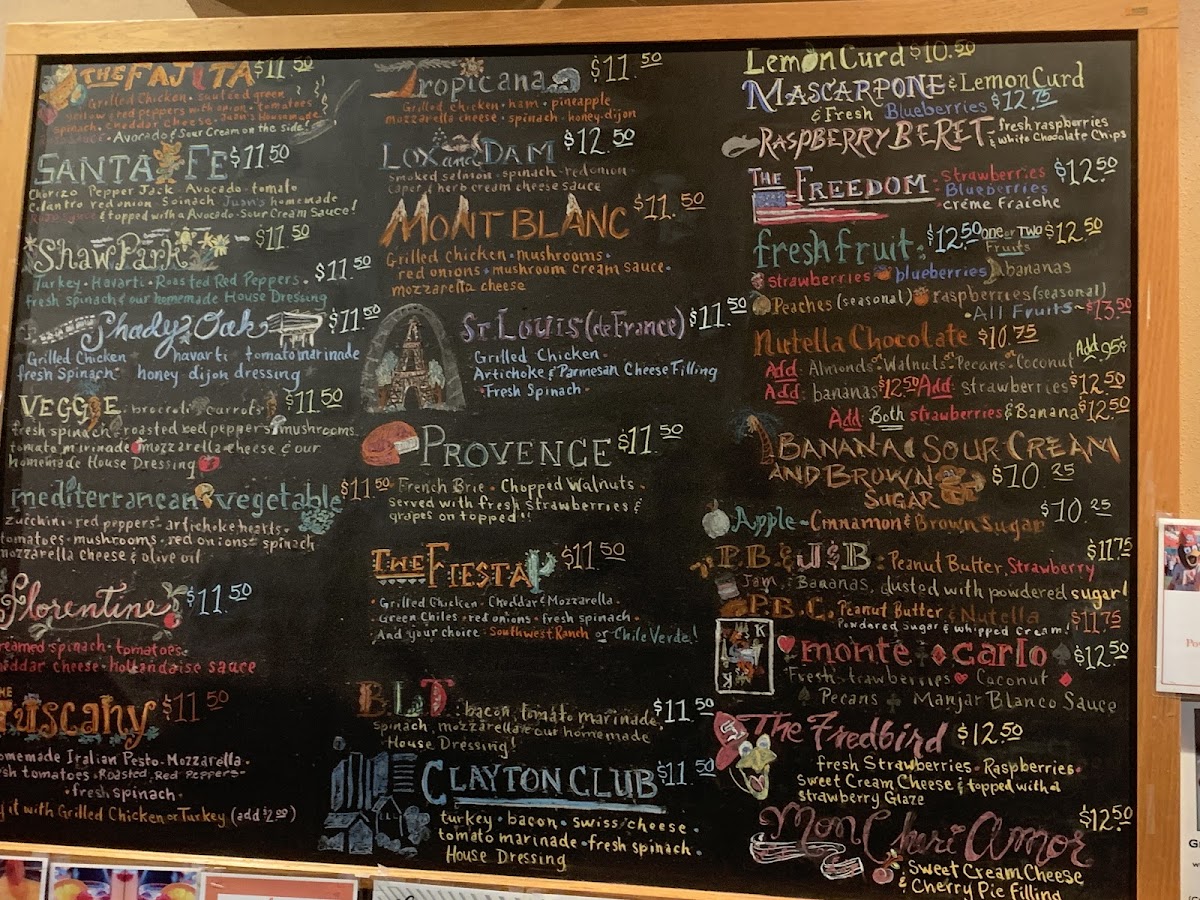 THE FAJITA $11.50
Grilled Chicken • sautéed green
yellow & red peppers with onion • tomatoes
spinach • cheddar cheese • Juan's Homemade
• Avocado & Sour Cream on the side!
SANTA FE $11.50
Chorizo Pepper Jack Avocado • tomato
Cilantro red onion Spinach Juan's homemade
& topped with a Avocado • Sour Cream Sauce!
Shaw Park $11.50
Turkey • Havarti • Roasted Red Peppers • $11.50
fresh spinach & our homemade House Dressing
Shady Oak $11.50
Grilled Chicken havarti tomato marinade
fresh Spinach honey dijon dressing
VEGGIE : broccoli carrots $11.50
fresh spinach roasted red peppers mushrooms
tomato marinade mozzarella cheese & our
homemade House Dressing
mediterranean vegetable $11.50
zucchini • red peppers • artichoke hearts •
tomatoes • mushrooms • red onions • spinach
mozzarella cheese & olive oil
Florentine $11.50
creamed spinach • tomatoes •
cheddar cheese • hollandaise sauce
THE
Tuscany $11.50
homemade Italian Pesto • Mozzarella •
fresh tomatoes • Roasted Red Peppers
• fresh spinach •
it with Grilled Chicken or Turkey (add $2.00)
Tropicana $11.50
Grilled Chicken • ham • pineapple
mozzarella cheese • spinach • honey dijon
LOX and DAM $12.50
Smoked salmon • spinach • red onion
caper & herb cream cheese sauce
MONT BLANC $11.50
Grilled chicken • mushrooms •
red onions • mushroom cream sauce •
mozzarella cheese
ST. LOUIS (de France) $11.50
Grilled Chicken •
Artichoke & Parmesan Cheese Filling
• Fresh Spinach •
PROVENCE $11.50
French Brie • Chopped Walnuts •
served with fresh strawberries &
grapes on topped!!
THE FIESTA $11.50
• Grilled Chicken • Cheddar & Mozzarella •
• Green Chiles • red onions • fresh spinach •
And your choice • Southwest Ranch or Chile Verde!
BLT : bacon, tomato marinade, $11.50
spinach, mozzarella & our homemade
House Dressing!
CLAYTON CLUB $11.50
turkey • bacon • swiss cheese •
tomato marinade • fresh spinach •
House Dressing
Lemon Curd $10.50
MASCARPONE & Lemon Curd
& Fresh Blueberries $12.75
RASPBERRY BERET fresh raspberries
& white Chocolate Chips
THE FREEDOM : Strawberries $12.50
Blueberries
créme Fraiche
fresh fruit : $12.50 one or Two $12.50
Fruits
strawberries blueberries bananas
Peaches (seasonal) raspberries (seasonal)
• All Fruits ~ $13.50
Nutella Chocolate $10.75
Add: Almonds or Walnuts or Pecans or Coconut Add .95¢
Add: bananas $12.50 Add: strawberries $12.50
Add: Both strawberries & Banana $12.50
BANANA & SOUR CREAM
AND BROWN $10.25
SUGAR
Apple ~ Cinnamon & Brown Sugar $10.25
P.B. & J & B : Peanut Butter, Strawberry $11.75
Jam, Bananas, dusted with powdered sugar!
P.B.C. Peanut Butter & Nutella $11.75
Powdered sugar & whipped cream!
K
K
monte carlo $12.50
Fresh Strawberries Coconut
Pecans Manjar Blanco Sauce
The Fredbird $12.50
fresh Strawberries • Raspberries •
Sweet Cream Cheese & topped with a
strawberry Glaze
Mon Cheri Amor $12.50
Sweet Cream Cheese
& Cherry Pie Filling